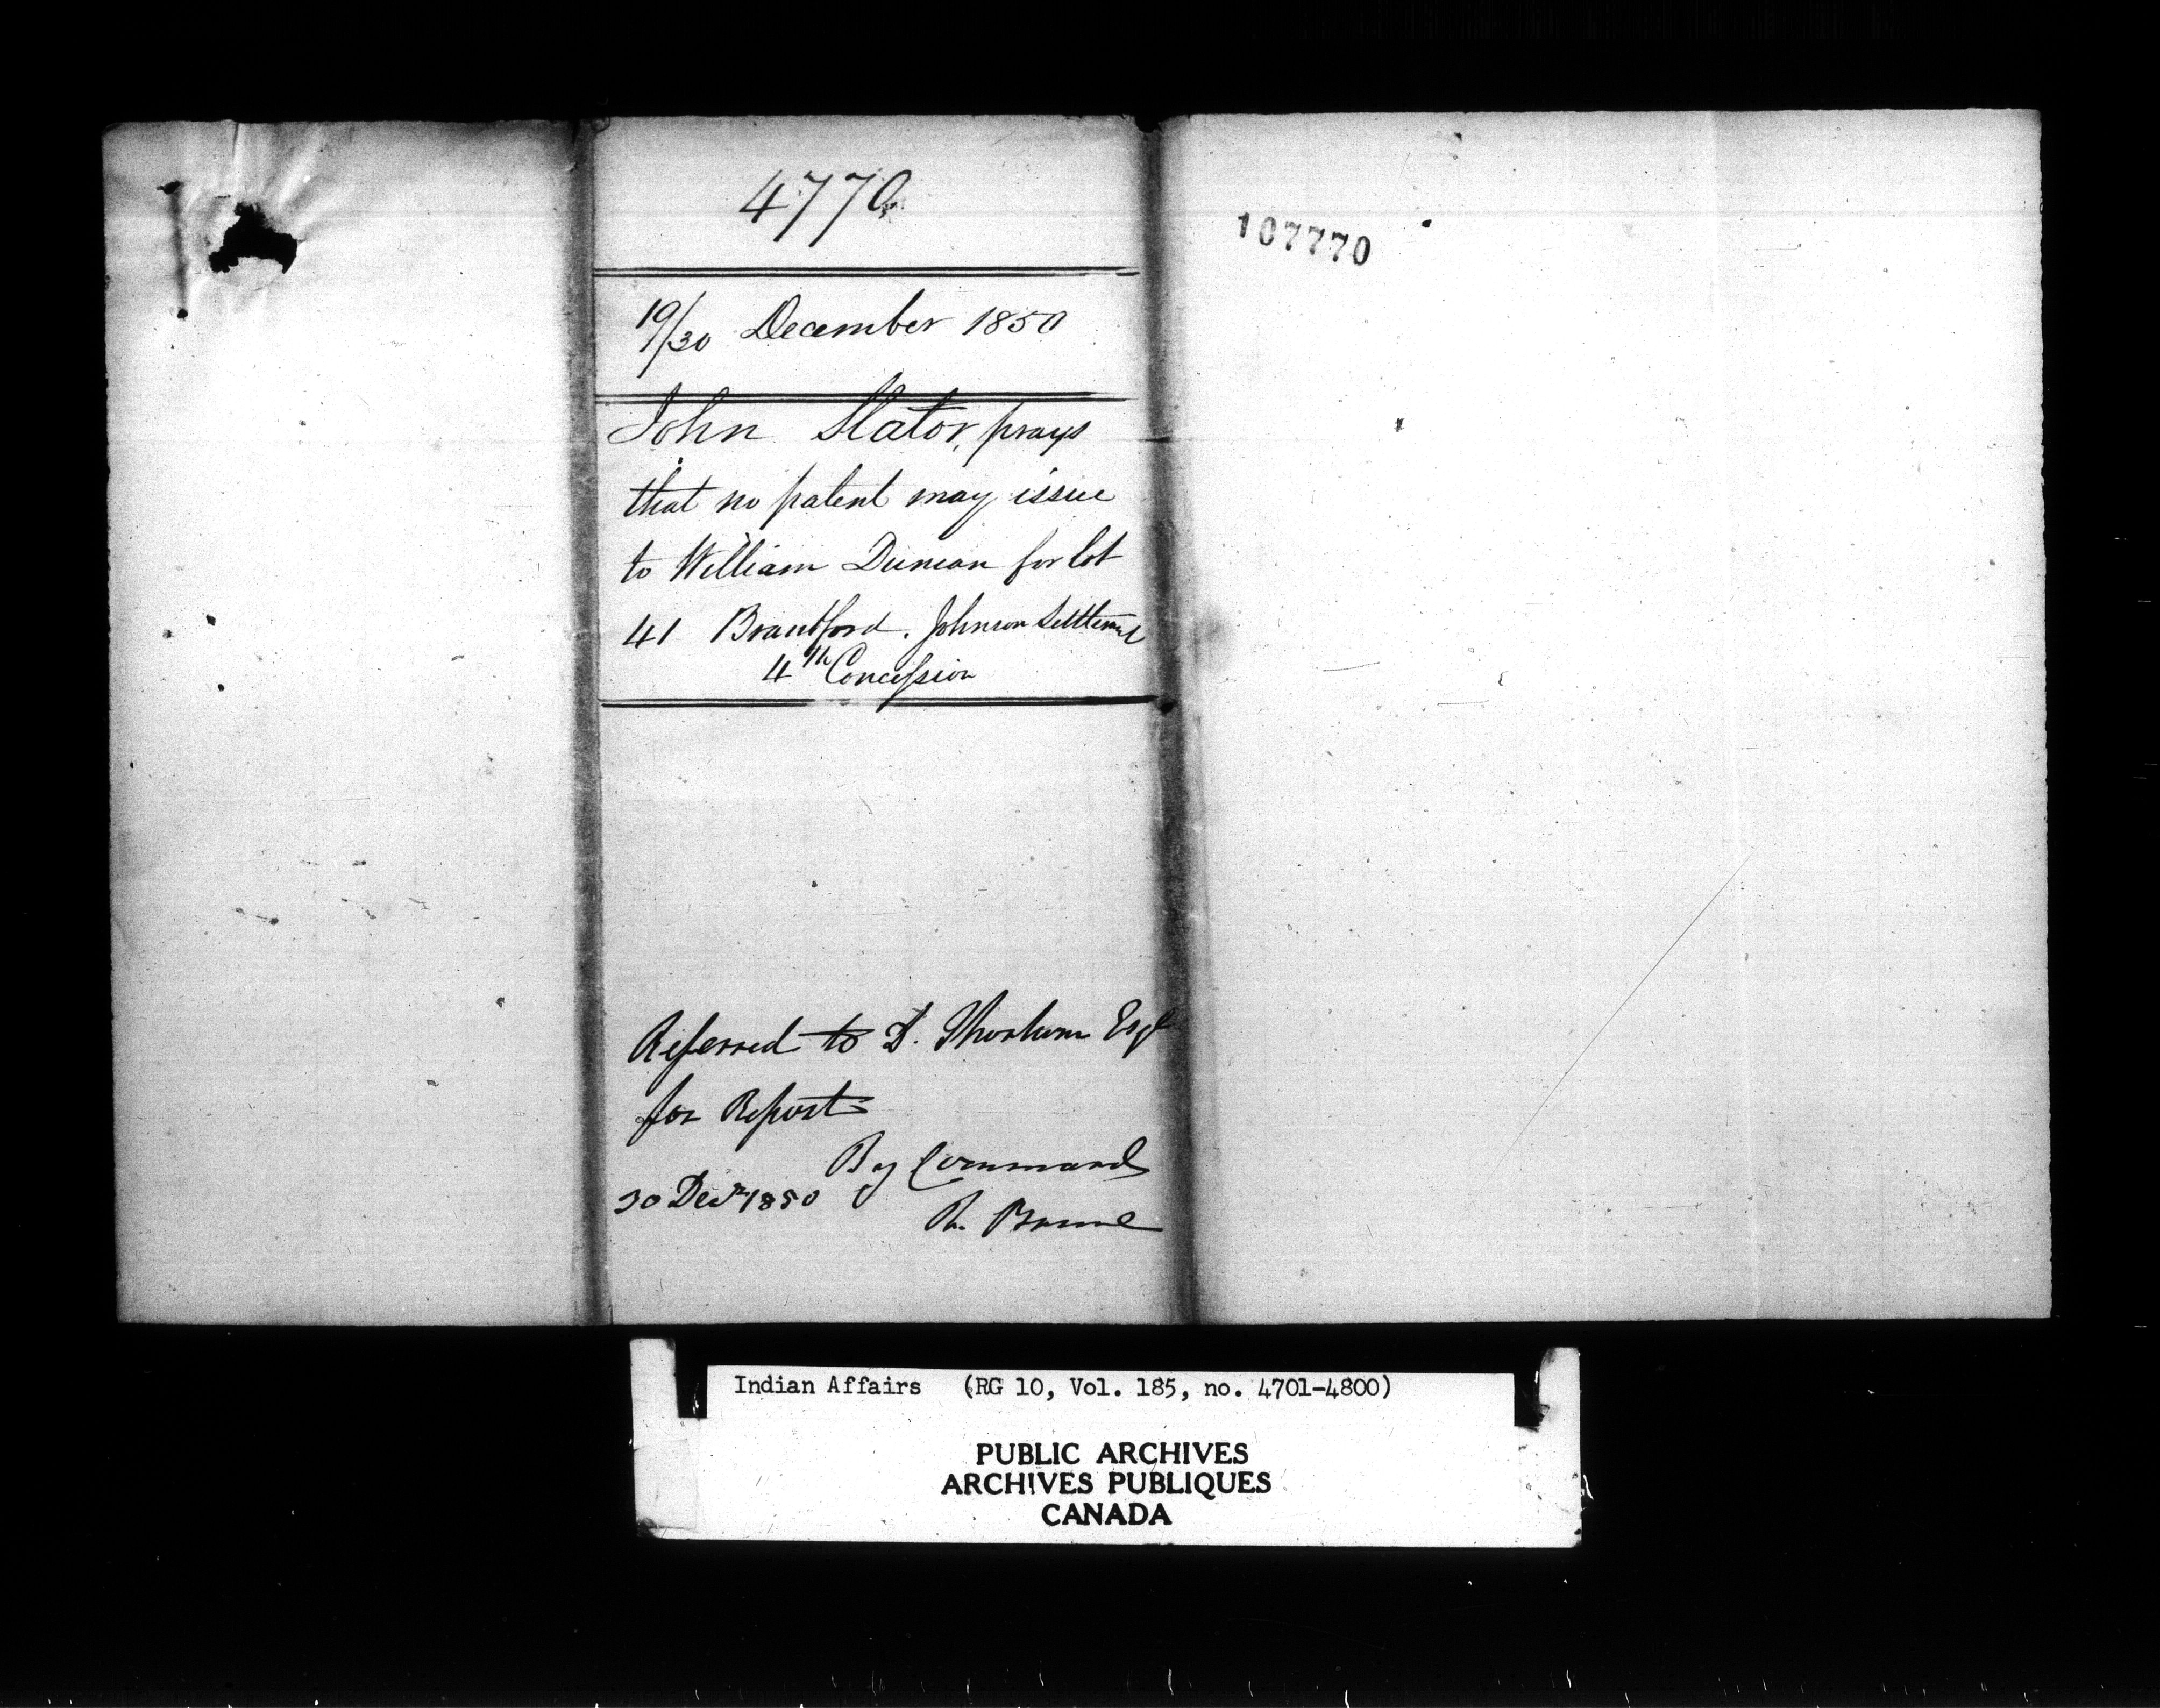 4770
19/30 December 1850
John Slator, prays
that no patent may issue
to William Duncan for lot
41 Brantford. Johnson Settlement
4th Concession
107770
Referred to D. Thorburn Esqr
for Report
By Command
30 Decr 1850
R. Bruce
Indian Affairs (RG 10, Vol. 185, no. 4701-4800)
PUBLIC ARCHIVES
ARCHIVES PUBLIQUES
CANADA